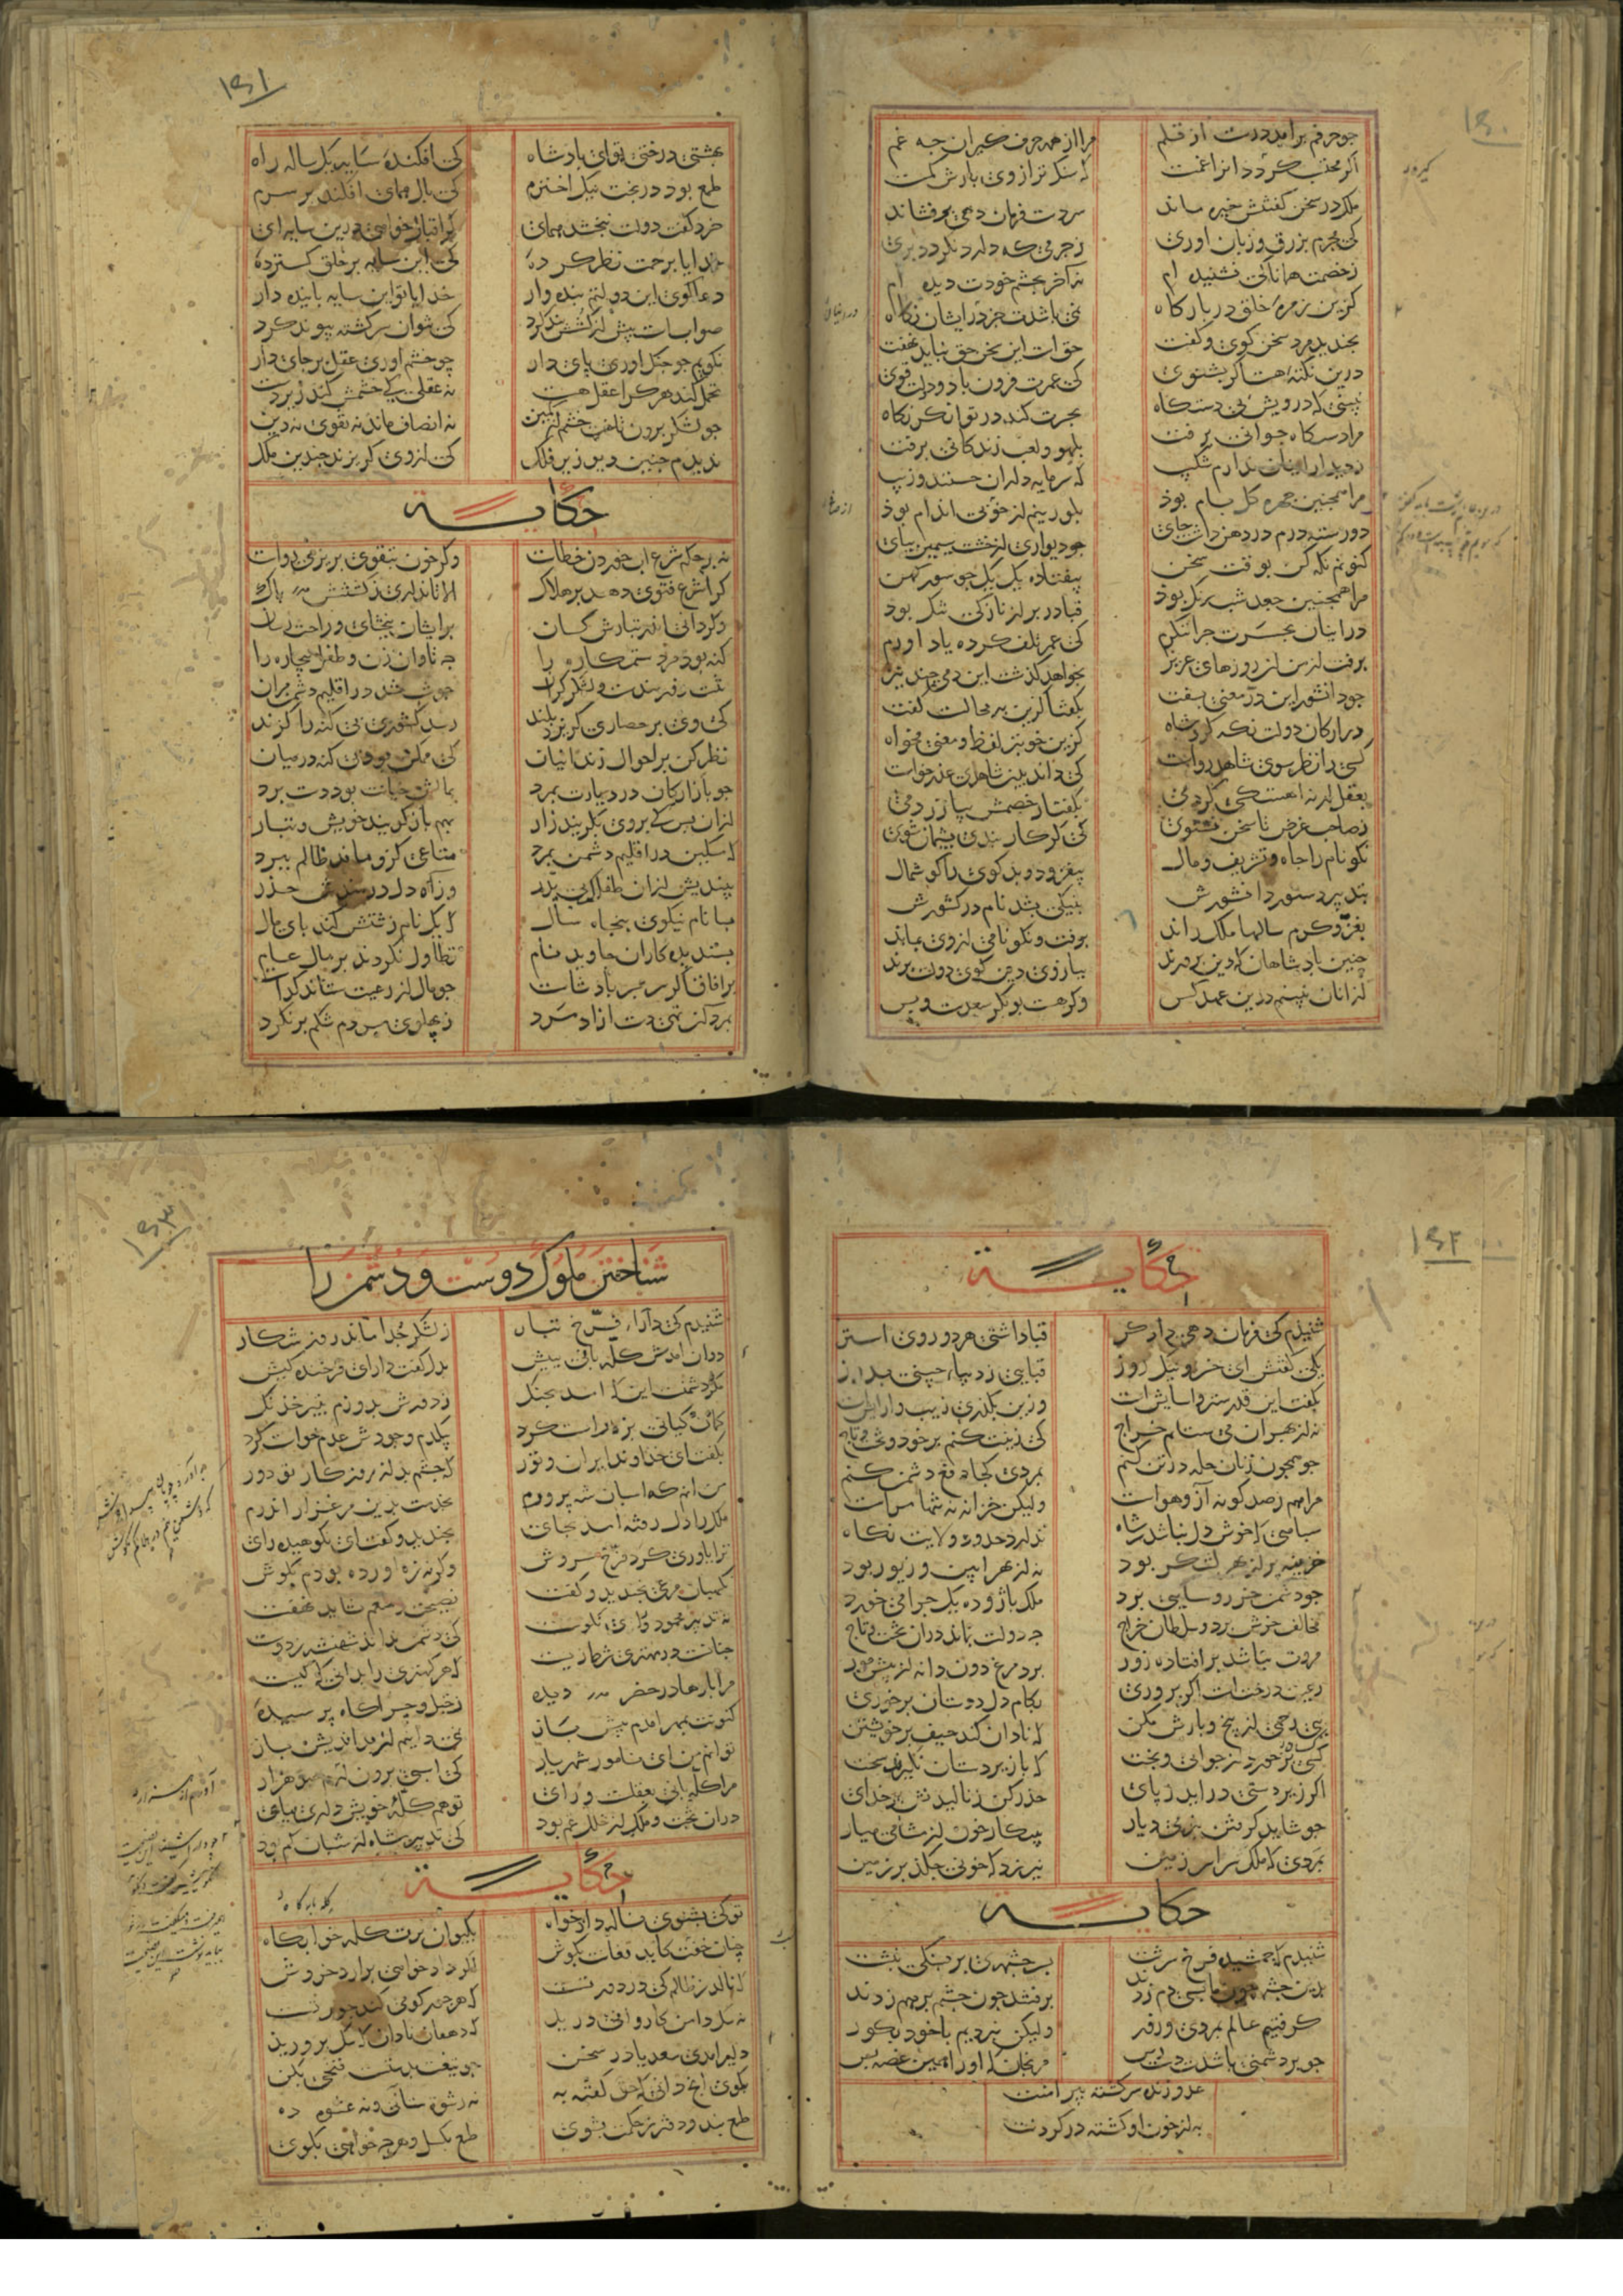 ۱۵۰
چو حرفم برآید درست از قلم مرا از همه حرف گیران چه غم
اگر محتسب گردد انرا غمست که سنک ترازوی بارش کمست
ملک در سخن گفتنش خیره ماند سر دست فرمان دهی برفشاند
کی مجرم بزرق و زبان اوری ز جرمی که دارد نگردد بری
ز خصمت همانا کی نشنیده ام نه آخر بچشم خودت دیده ام
کزین زمره خلق در بارکاه نمی باشدت جز در ایشان نکاه
بخندید مرد سخن کوی و کفت حق است این سخن حق نباید نهفت
درین نکته هست اکر بشنوی کی عمرت فزون باد و دولت قوی
نبینی که درویش بی دستکاه بحسرت کند در توانکر نکاه
مرا دستکاه جوانی برفت بلهو و لعب زندکانی برفت
ز دیدار اینان ندارم شکیب که سرمایه داران حسنند و زیب
مرا همچنین چهره کل بام بوذ بلورینم از خوبی اندام بوذ
دو رسته درم در دهن داشت جای چو دیواری از خشت سیمین بپای
کنونم نکه کن بوقت سخن بیفتاده یک یک چو سور کهن
مرا همچنین جعد شب رنک بوذ قبا در بر از نازکی تنک بود
در اینان بحسرت چرا ننکرم کی عمر تلف کرده یاد اورم
برفت از من ان روزهای عزیز بخواهد کذشت این دمی چند نیز
چو دانشور این در معنی بسفت بکفتا کزین به محالست کفت
در ارکان دولت نکه کرد شاه کزین خوبتر لفظ و معنی مخواه
کسی را نظر سوی شاهد رواست کی داند بدین شاهدی عذر خواست
بعقل ار نه اهستکی کردمی بکفتار خصمش بیازردمی
ز صاحب غرض تا سخن نشنوی کی کر کار بندی پشیمان شوی
نکونام را جاه و تشریف و مال بیفزود و بد کوی را کوشمال
بتدبیر دستور دانشورش بنیکی بشد نام در کشورش
بعز و کرم سالها ملک راند برفت و نکونامی از وی بماند
چنین پادشاهان که دین پرورند ببازوی دین کوی دولت برند
از انان نبینم درین عهد کس وکر هست بوبکر سعدست و بس
۱۵۱
بهشتی درختی توای پادشاه کی افکندۀ سایه یک ساله راه
طمع بود در بخت نیک اخترم کی بال همای افکند بر سرم
خرد کفت دولت نبخشد همای کر اقبال خواهی درین سایه ای
خدایا برحمت نظر کردۀ کی این سایه بر خلق کستردۀ
دعا کوی این دولتم بنده وار خدایا تو این سایه پاینده دار
صوابست پیش از کشش بند کرد کی نتوان سر کشته پیوند کرد
نکویم چو جنک اوری پای دار چو خشم آوری عقل بر جای دار
تحمل کند هر کرا عقل هست نه عقلی کی خشمش کند زیردست
چو لشکر برون تاخت خشم از کمین نه انصاف ماند نه تقوی نه دین
ندیدم چنین دیو زیر فلک کی از وی کریزند چندین ملک
حکایة
نه بر حکم شرع اب خوردن خطاست وکر خون بتقوی بریزی رواست
کرا شرع فتوی دهد بر هلاک الا تا نداری ز کشتنش باک
وکر دانی اندر تبارش کسان بر ایشان ببخشای و راحت رسان
کنه بود مرد ستمکاره را چه تاوان زن و طفل بیچاره را
تنت زورمندست و لشکر کران ولیکن در اقلیم دشمن مران
کی وی بر حصاری کریزد بلند رسد کشوری بی کنه را کزند
نظر کن بر احوال زندانیان کی ممکن بود بی کنه در میان
چو بازارکان در دیارت بمرد بمالش خیانت بود دست برد
کزان پس کی بر وی بکریند زار بهم باز کویند خویش و تبار
که مسکین در اقلیم دشمن بمرد متاعی کزو ماند ظالم ببرد
بیندیش از ان طفلک بی پدر وز آه دل دردمندش حذر
بسا نام نیکوی پنجاه سال که یک نام زشتش کند پای مال
پسندیده کاران جاوید نام تطاول نکردند بر مال عام
بر آفاق اکر سر بسر پادشاست چو مال از رعیت ستاند کداست
بمرد از تهی دستی آزاد مرد ز پهلوی مسکین شکم پر نکرد
۱۵۲
حکایة
شنیدم کی فرمان دهی دادکر قبا داشتی هر دو روی آستر
یکی کفتش ای خسرو نیک روز قبایی ز دیبای چینی بدوز
بکفت این قدر ستر و آسایش است وزین بکذری زیب و ارایش است
نه از بهر ان می ستانم خراج کی زینت کنم بر خود و تخت و تاج
چو همچون زنان حله در تن کنم بمردی کجا دفع دشمن کنم
مرا هم ز صد کونه آز و هواست ولیکن خزانه نه تنها مراست
سپاهی که خوش دل نباشد ز شاه ندارد حدود ولایت نکاه
خزینه پر از بهر لشکر بود نه از بهر آیین و زیور بود
چو دشمن خر روستایی برد ملک باژ و ده یک چرا می خورد
مخالف خرش برد و سلطان خراج چه دولت بماند در ان تخت و تاج
مروت نباشد بر افتاده زور برد مرغ دون دانه از پیش مور
رعیت درختست اکر پروری بکام دل دوستان برخوری
به بی رحمی از بیخ و بارش مکن که نادان کند حیف بر خویشتن
کسی برخورد از جوانی و بخت که با زیردستان نکیرند سخت
اکر زیردستی درآید ز پای حذر کن ز نالیدنش بر خدای
چو شاید کرفتن بنرمی دیار بپیکار خون از مشامی میار
بمردی که ملک سراسر زمین نیرزد که خونی چکد بر زمین
حکایة
شنیدم که جمشید فرخ سرشت بسر چشمه‌ای بر بسنکی نبشت
بدین چشمه چون ما بسی دم زدند برفتند چون چشم برهم زدند
کرفتیم عالم بمردی و زور ولیکن نبردیم با خود بکور
چو بر دشمنی باشدت دست رس مرنجانش کاو را همین غصه بس
عدو زنده سرکشته پیرامنت
به از خون او کشته در کردنت
۱۵۳
شناختن ملوک دوست و دشمن را
شنیدم کی دارای فرخ تبار ز لشکر جدا ماند روز شکار
دوان آمدش کله بانی بپیش بدل کفت دارای فرخنده کیش
مکر دشمنست این که آمد بجنک ز دورش بدوزم بتیر خدنک
کمان کیانی بزه راست کرد بیکدم وجودش عدم خواست کرد
بکفت ای خداوند ایران و تور که چشم بد از روزکار تو دور
من آنم که اسپان شه پرورم بخدمت بدین مرغزار اندرم
ملک را دل رفته آمد بجای بخندید و کفت ای نکوهیده رای
ترا یاوری کرد فرخ سروش وکر نه زه آورده بودم بکوش
نکهبان مرعی بخندید و کفت نصیحت ز منعم نشاید نهفت
نه تدبیر محمود و رای نکوست کی دشمن نداند شهنشه ز دوست
چنانست در مهتری شرط زیست که هر کهتری را بدانی که کیست
مرا بارها در حضر دیده ز خیل و چراکاه پرسیدۀ
کنونت بمهر آمدم پیش باز نمی دانیم از بداندیش باز
توانم من ای نامور شهریار کی اسبی برون آرم از صد هزار
مرا کله بانی بعقلست و رای تو هم کله خویش داری بپای
در ان تخت و ملک از خلل غم بود کی تدبیر شاه از شبان کم بود
حکایة
تو کی بشنوی ناله داد خواه بکیوان برت کله خوابکاه
چنان خفت کاید فغانت بکوش اکر داد خواهی برآرد خروش
که نالد ز ظالم کی در دور تست که هر جور کو می کند جور تست
نه سک دامن کاروانی درید که دهقان نادان که سک پرورید
دلیر آمدی سعدیا در سخن چو تیغت بدستست فتحی بکن
بکوی انچ دانی که حق کفته به نه رشوت ستانی و نه عشوه ده
طمع بند و دفتر ز حکمت بشوی طمع بکسل و هرچه خواهی بکوی